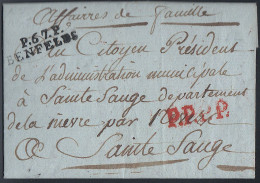 affaires de famille
P.67.P.
BENFELDE
au Citoyen Président
de l'administration municipale
à Sainte Sauge département
de la nievre par
P.P.P.
Sainte Sauge